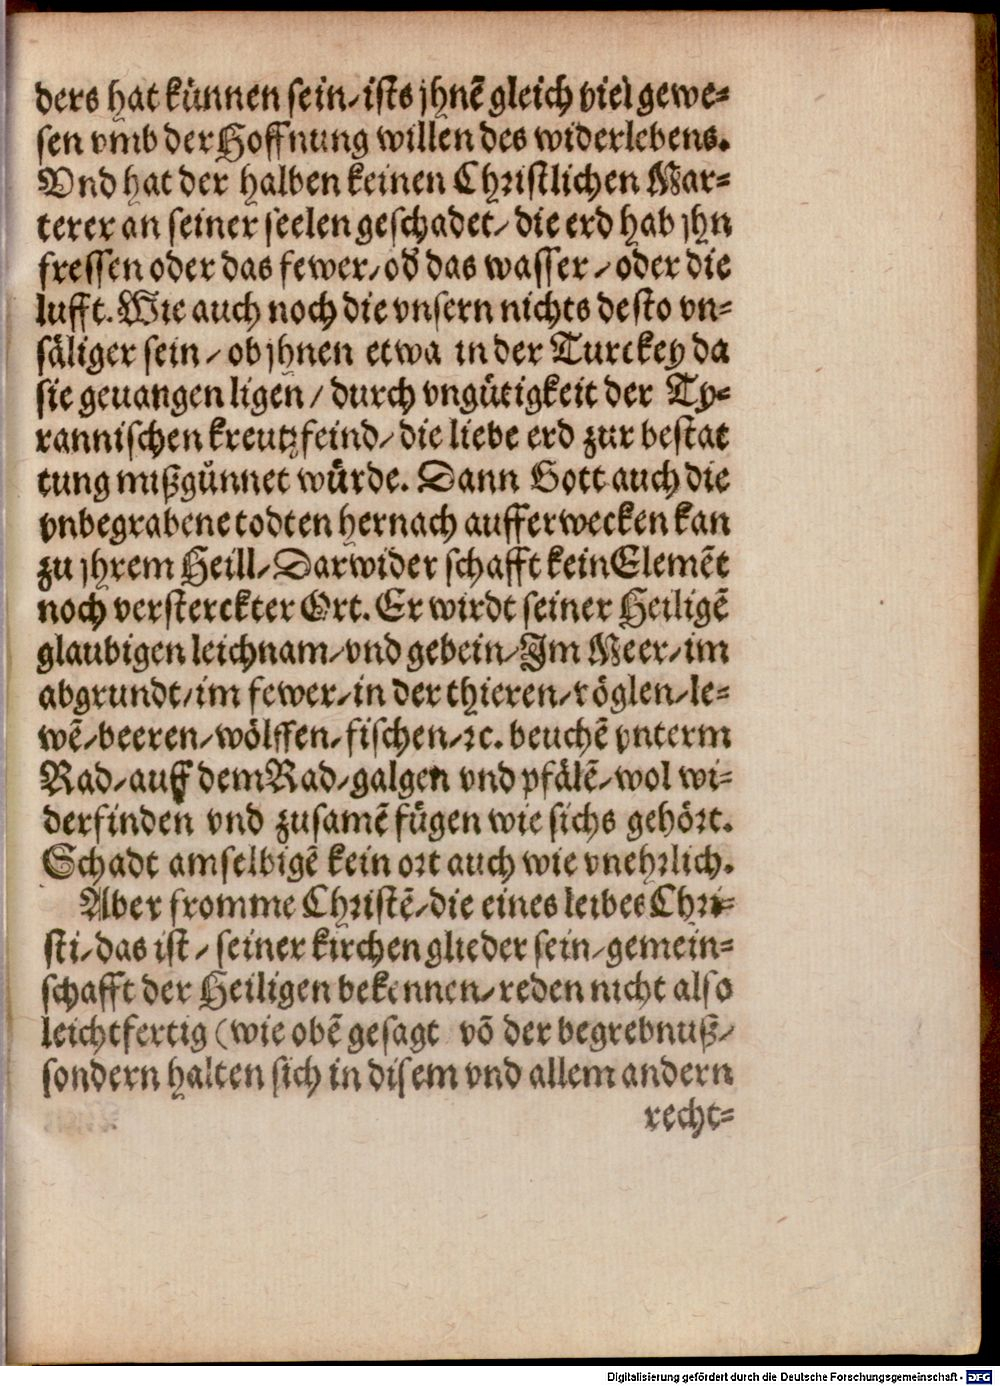 ders hat künnen sein/ ists jhnẽ gleich viel gewe⸗
sen vmb der Hoffnung willen des widerlebens.
Vnd hat der halben keinen Christlichen Mar⸗
terer an seiner seelen geschadet/ die erd hab jhn
fressen oder das fewer/ ob das wasser/ oder die
lufft. Wie auch noch die vnsern nichts desto vn⸗
säliger sein/ ob jhnen etwa in der Turckey da
sie geuangen ligen/ durch vngütigkeit der Ty⸗
rannischen kreutzfeind/ die liebe erd zur bestat
tung mißgünnet würde. Dann Gott auch die
vnbegrabene todten hernach aufferwecken kan
zu jhrem Heill/ Darwider schafft kein Elemẽt
noch versterckter Ort. Er wirdt seiner Heiligẽ
glaubigen leichnam/ vnd gebein/ Im Meer/ im
abgrundt/ im fewer/ in der thieren/ vöglen/ le⸗
wẽ/ beeren/ wölffen/ fischen/ ꝛc. beuchẽ vnterm
Rad/ auff dem Rad/ galgen vnd pfälẽ/ wol wi⸗
derfinden vnd zusamẽ fügen wie sichs gehört.
Schadt am selbigẽ kein ort auch wie vnehrlich.
Aber fromme Christẽ/ die eines leibes Chri⸗
sti/ das ist/ seiner kirchen glieder sein/ gemein⸗
schafft der Heiligen bekennen/ reden nicht also
leichtfertig (wie obẽ gesagt võ der begrebnuß/
sondern halten sich in disem vnd allem andern
recht⸗
Digitalisierung gefördert durch die Deutsche Forschungsgemeinschaft - DFG